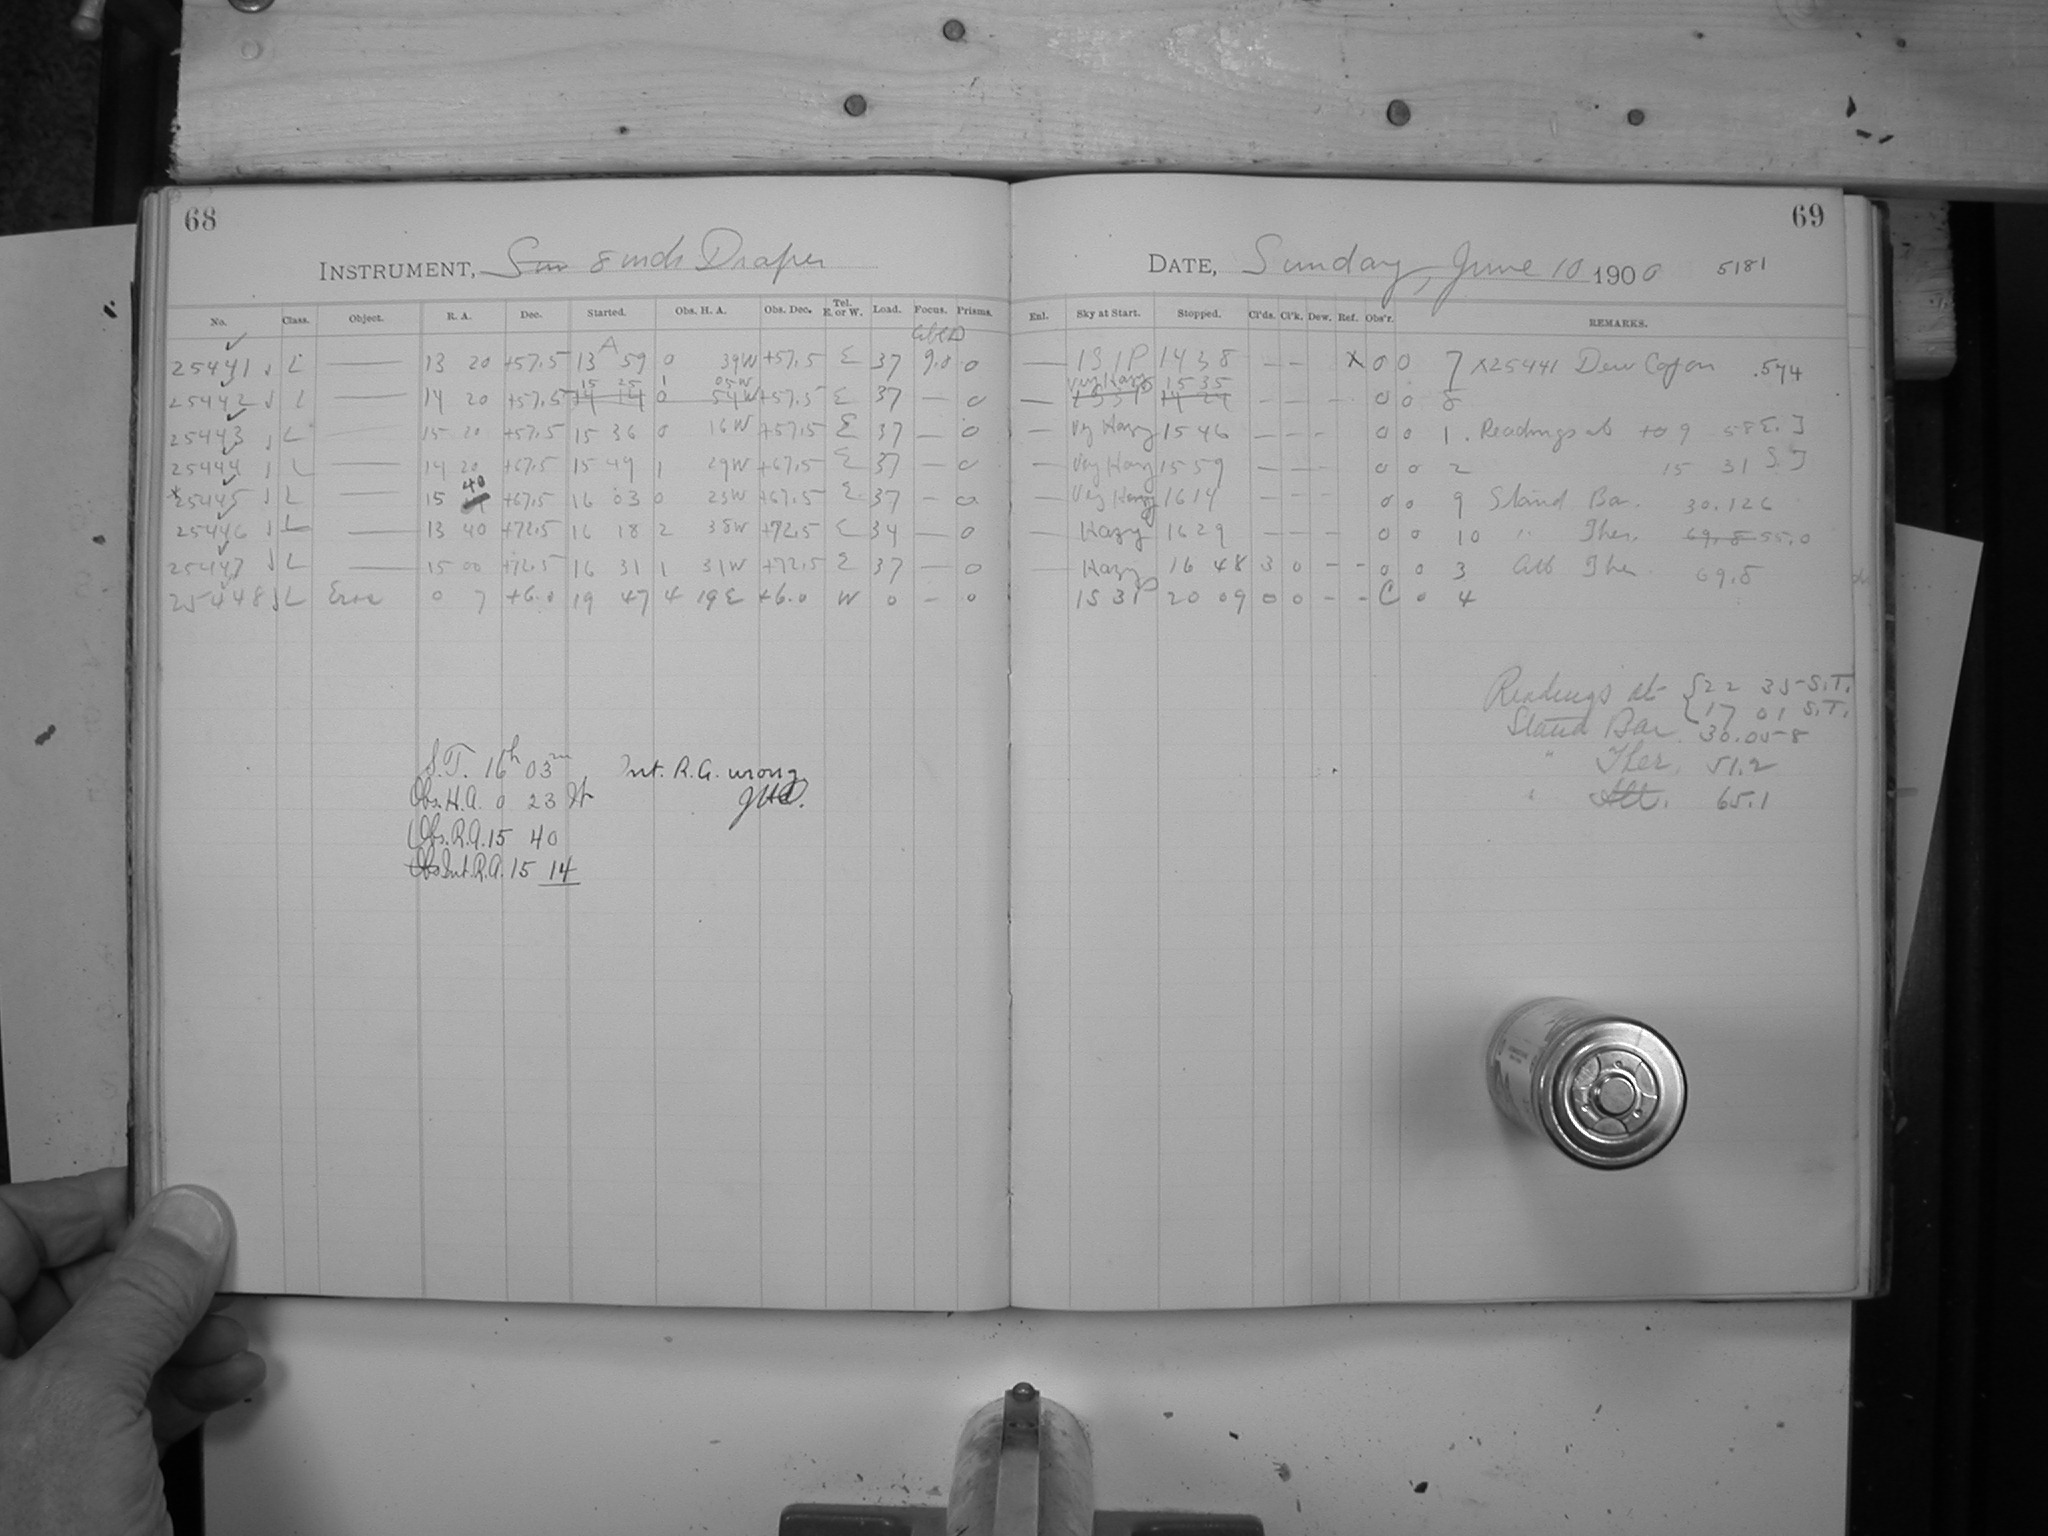 68
INSTRUMENT, 8 inch Draper
No. Class. Object. R. A. Dec. Started. Obs. H. A. Obs. Dec. Tel. E. or W. Load. Focus. Prisms.
25441 L — 13 20 +57.5 13 59 0 39W +57.5 E 37 9.0 0
15 25 1 05W
25442 L — 14 20 +57.5 14 14 0 54W +57.5 E 37 — 0
25443 L — 15 20 +57.5 15 36 0 16W +57.5 E 37 — 0
25444 L — 14 20 +67.5 15 49 1 29W +67.5 E 37 — 0
40
*25445 L — 15 +67.5 16 03 0 23W +67.5 E 37 — 0
25446 L — 13 40 +72.5 16 18 2 38W +72.5 E 34 — 0
25447 L — 15 00 +72.5 16 31 1 31W +72.5 E 37 — 0
25448 L Eros 0 7 +6.0 19 47 4 19E +6.0 W 0 — 0
S.T. 16h 03m Int. R.A. wrong
Obs. H.A. 0 23 W
Obs. R.A. 15 40
Int. R.A. 15 14
69
DATE, Sunday, June 10 1900 5181
Enl. Sky at Start. Stopped. Cl'ds. Cl'k. Dew. Ref. Obs'r. REMARKS.
— 1438 — — X 0 0 7 X25441 Dew Cap on .574
Very Hazy 1535
— 14 24 — — — 0 0 8
— Vy Hazy 1546 — — — 0 0 1. Readings at 9 58 E.
— Vey Hazy 1559 — — — 0 0 2 15 31 S.
— Vey Hazy 1614 — — — 0 0 9 Stand Bar. 30.126
— Hazy 1629 — — — 0 0 10 " Ther. 69.8 55.0
— Hazy 16 48 3 0 - - 0 0 3 Att Ther. 69.8
20 09 0 0 - - C 0 4
Readings at { 22 35 S.T.
{ 17 01 S.T.
Stand Bar. 30.058
" Ther. 51.2
" Att. 65.1